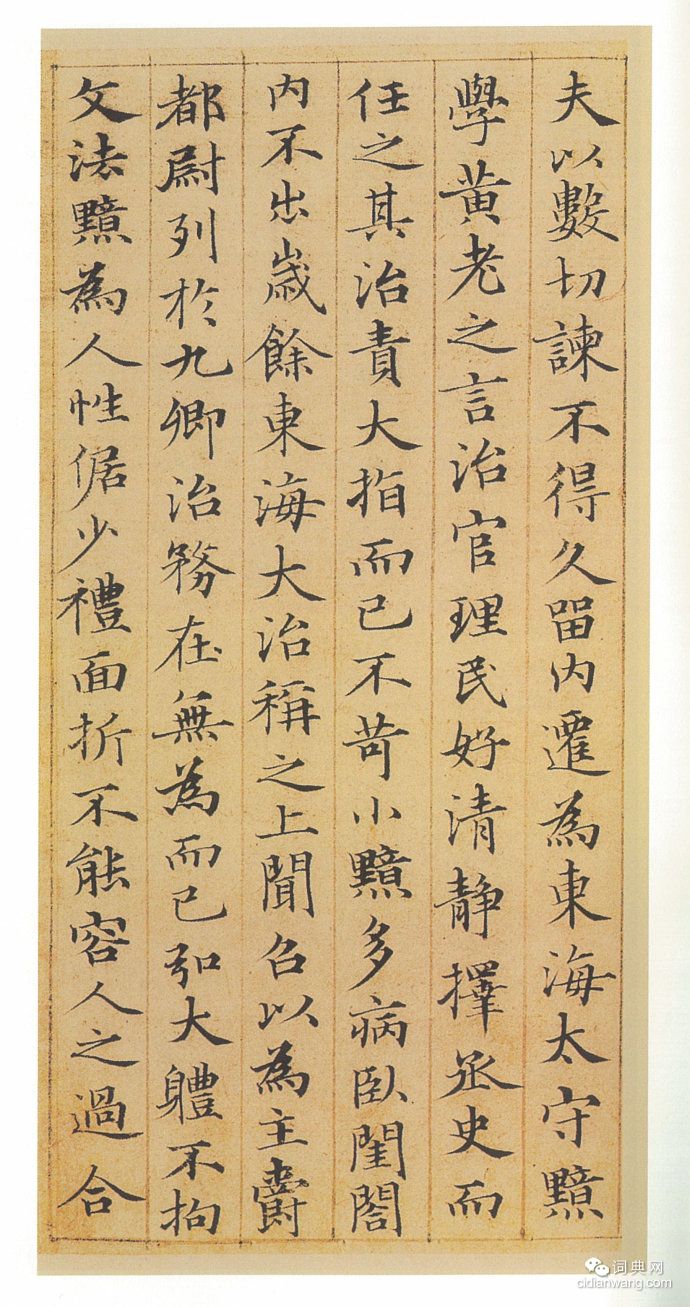 夫以數切諫不得久留內遷為東海太守黯
學黃老之言治官理民好清靜擇丞史而
任之其治責大指而已不苛小黯多病臥閨閤
內不出歲餘東海大治稱之上聞召以為主爵
都尉列於九卿治務在無為而已弘大體不拘
文法黯為人性倨少禮面折不能容人之過合
词典网
cidianwang.com